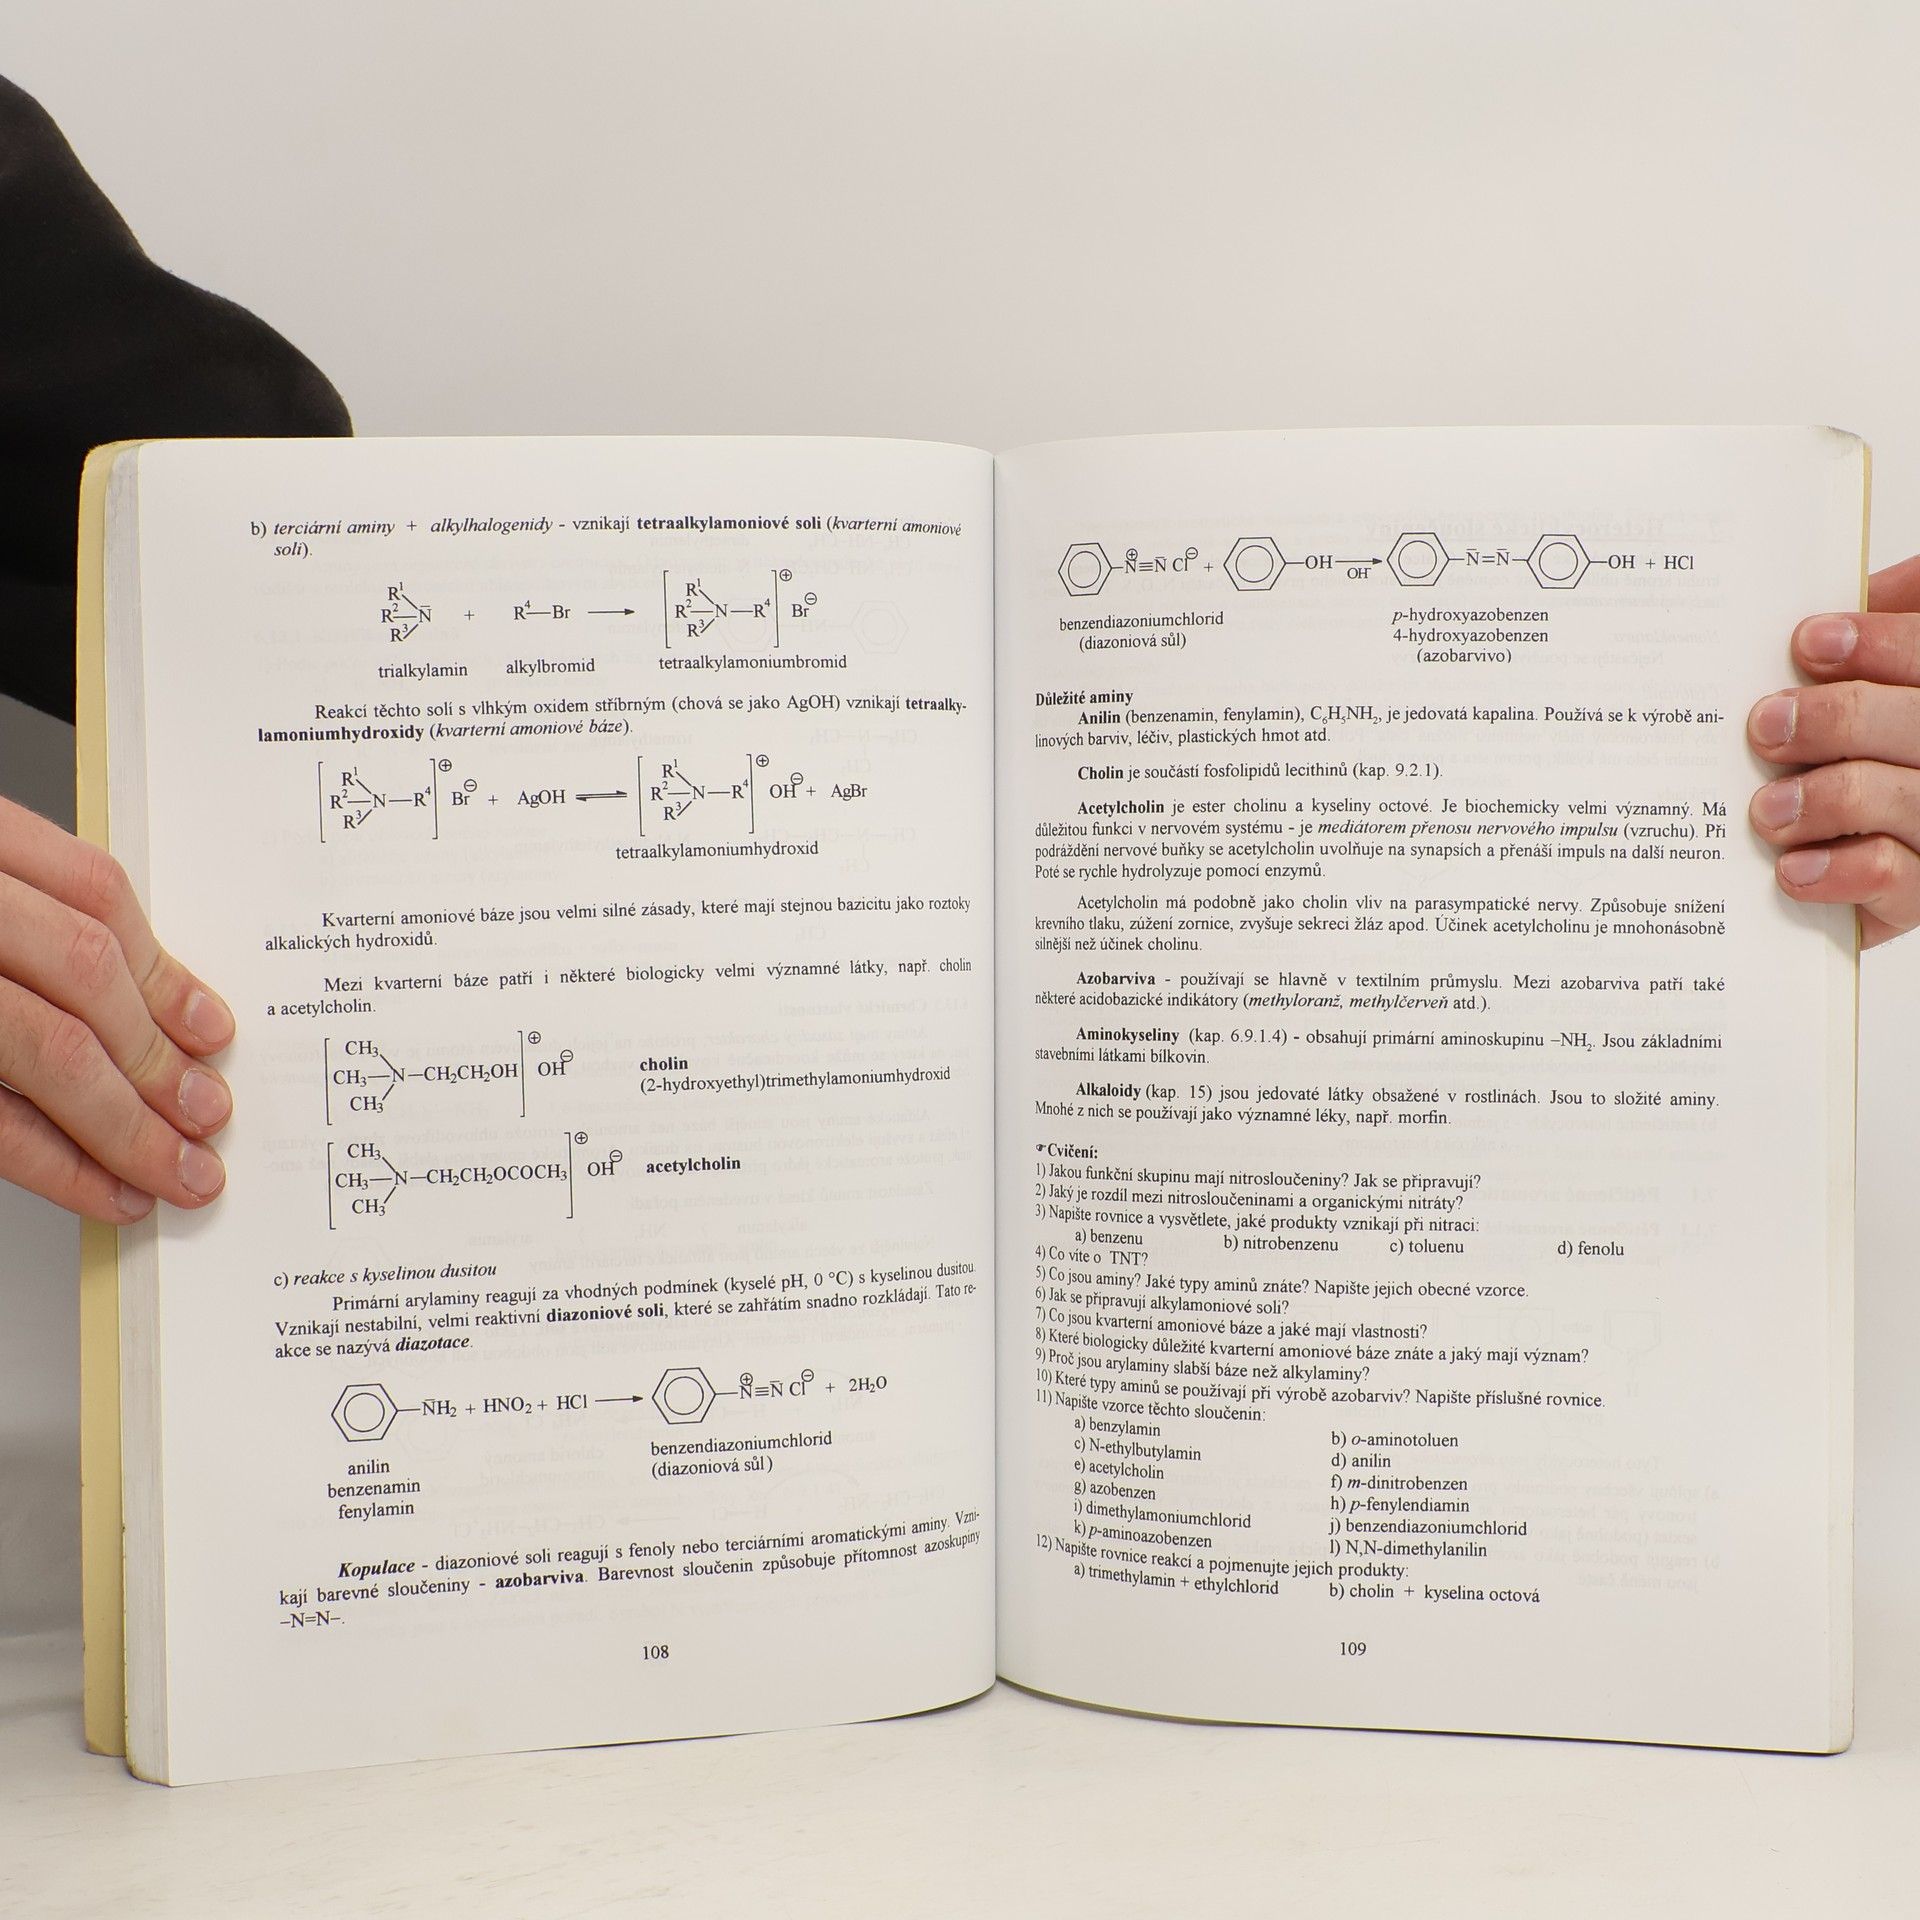 b) terciární aminy + alkylhalogenidy - vznikají tetraalkylamoniové soli (kvarterní amoniové
soli).
R¹
R²—N̄ + R⁴—Br ⟶ R²—N—R⁴ ⊕ Br⊖
R³
trialkylamin alkylbromid tetraalkylamoniumbromid
Reakcí těchto solí s vlhkým oxidem stříbrným (chová se jako AgOH) vznikají tetraalky-
lamoniumhydroxidy (kvarterní amoniové báze).
R¹ R¹
R²—N—R⁴ ⊕ Br⊖ + AgOH ⇌ R²—N—R⁴ ⊕ OH⊖ + AgBr
R³ R³
tetraalkylamoniumhydroxid
Kvarterní amoniové báze jsou velmi silné zásady, které mají stejnou bazicitu jako roztoky
alkalických hydroxidů.
Mezi kvarterní báze patří i některé biologicky velmi významné látky, např. cholin
a acetylcholin.
CH₃
CH₃—N—CH₂CH₂OH ⊕ OH⊖ cholin
CH₃ (2-hydroxyethyl)trimethylamoniumhydroxid
CH₃
CH₃—N—CH₂CH₂OCOCH₃ ⊕ OH⊖ acetylcholin
CH₃
c) reakce s kyselinou dusitou
Primární arylaminy reagují za vhodných podmínek (kyselé pH, 0 °C) s kyselinou dusitou.
Vznikají nestabilní, velmi reaktivní diazoniové soli, které se zahřátím snadno rozkládají. Tato re-
akce se nazývá diazotace.
—N̄H₂ + HNO₂ + HCl ⟶ —N⊕≡N̄ Cl⊖ + 2H₂O
anilin benzendiazoniumchlorid
benzenamin (diazoniová sůl)
fenylamin
Kopulace - diazoniové soli reagují s fenoly nebo terciárními aromatickými aminy. Vzni-
kají barevné sloučeniny - azobarviva. Barevnost sloučenin způsobuje přítomnost azoskupiny
–N=N–.
108
—N⊕≡N̄ Cl⊖ + —OH ⟶ OH⁻ —N̄=N̄— —OH + HCl
benzendiazoniumchlorid p-hydroxyazobenzen
(diazoniová sůl) 4-hydroxyazobenzen
(azobarvivo)
Důležité aminy
Anilin (benzenamin, fenylamin), C₆H₅NH₂, je jedovatá kapalina. Používá se k výrobě ani-
linových barviv, léčiv, plastických hmot atd.
Cholin je součástí fosfolipidů lecithinů (kap. 9.2.1).
Acetylcholin je ester cholinu a kyseliny octové. Je biochemicky velmi významný. Má
důležitou funkci v nervovém systému - je mediátorem přenosu nervového impulsu (vzruchu). Při
podráždění nervové buňky se acetylcholin uvolňuje na synapsích a přenáší impuls na další neuron.
Poté se rychle hydrolyzuje pomocí enzymů.
Acetylcholin má podobně jako cholin vliv na parasympatické nervy. Způsobuje snížení
krevního tlaku, zúžení zornice, zvyšuje sekreci žláz apod. Účinek acetylcholinu je mnohonásobně
silnější než účinek cholinu.
Azobarviva - používají se hlavně v textilním průmyslu. Mezi azobarviva patří také
některé acidobazické indikátory (methyloranž, methylčerveň atd.).
Aminokyseliny (kap. 6.9.1.4) - obsahují primární aminoskupinu –NH₂. Jsou základními
stavebními látkami bílkovin.
Alkaloidy (kap. 15) jsou jedovaté látky obsažené v rostlinách. Jsou to složité aminy.
Mnohé z nich se používají jako významné léky, např. morfin.
☞Cvičení:
1) Jakou funkční skupinu mají nitrosloučeniny? Jak se připravují?
2) Jaký je rozdíl mezi nitrosloučeninami a organickými nitráty?
3) Napište rovnice a vysvětlete, jaké produkty vznikají při nitraci:
a) benzenu b) nitrobenzenu c) toluenu d) fenolu
4) Co víte o TNT?
5) Co jsou aminy? Jaké typy aminů znáte? Napište jejich obecné vzorce.
6) Jak se připravují alkylamoniové soli?
7) Co jsou kvarterní amoniové báze a jaké mají vlastnosti?
8) Které biologicky důležité kvarterní amoniové báze znáte a jaký mají význam?
9) Proč jsou arylaminy slabší báze než alkylaminy?
10) Které typy aminů se používají při výrobě azobarviv? Napište příslušné rovnice.
11) Napište vzorce těchto sloučenin:
a) benzylamin b) o-aminotoluen
c) N-ethylbutylamin d) anilin
e) acetylcholin f) m-dinitrobenzen
g) azobenzen h) p-fenylendiamin
i) dimethylamoniumchlorid j) benzendiazoniumchlorid
k) p-aminoazobenzen l) N,N-dimethylanilin
12) Napište rovnice reakcí a pojmenujte jejich produkty:
a) trimethylamin + ethylchlorid b) cholin + kyselina octová
109